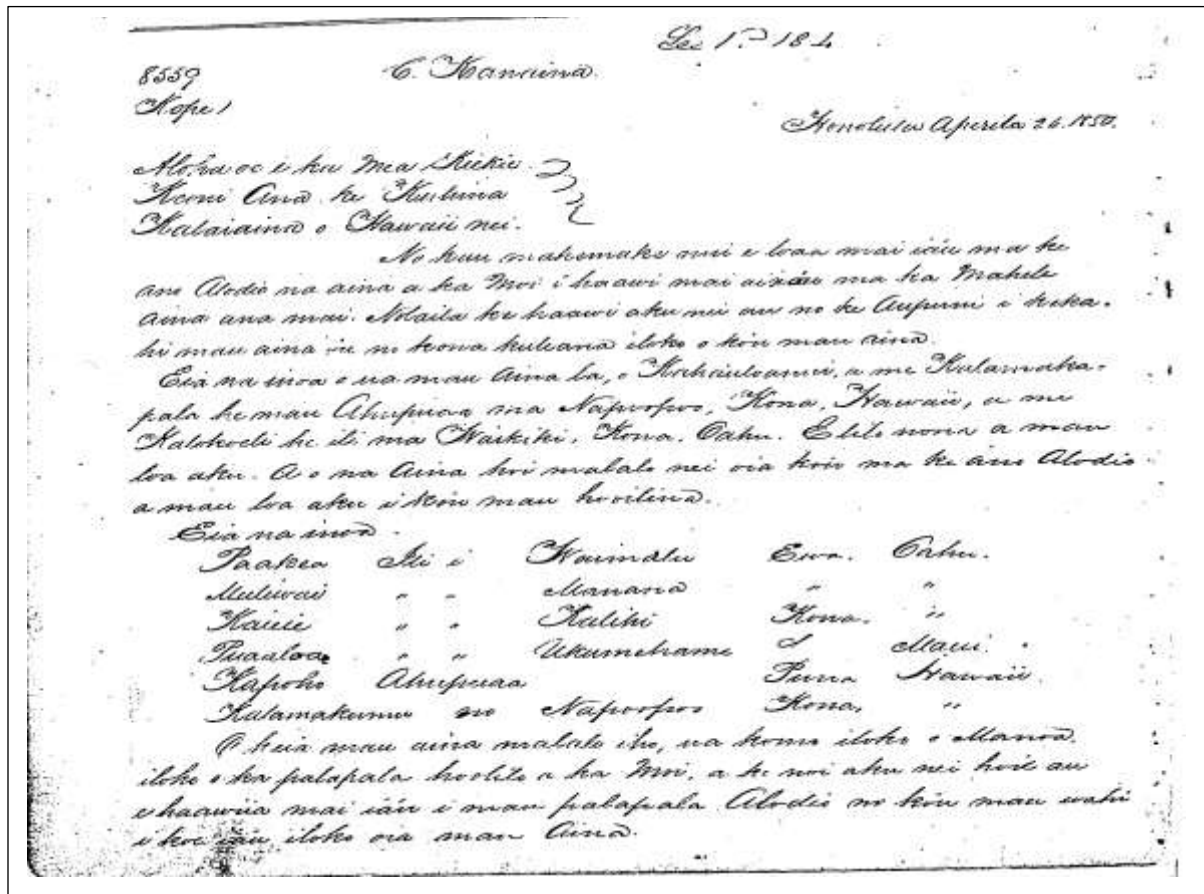 8559
C. Kanaina
Kope 1
Honolulu Aperila 26. 1850.
Aloha oe e ka Mea Kiekie
Keoni Ana ke Kuhina
Kalaiaina o Hawaii nei.
No kuu makemake nui e loaa mai iáu ma ke
ano Alodio na aina a ka Moi i haawi mai ai iáu ma ka Mahele
aina ana mai. Nolaila ke haawi aku nei au no ke Aupuni i keka-
hi mau aina iu no kona kuleana iloko o kóu mau aina.
Eia na inoa o ua mau Aina la, o Kahauloanui, a me Kalamaka-
pala he mau Ahupuaa ma Napoopoo, Kona, Hawaii, a me
Kalokoeli he ili ma Waikiki, Kona. Oahu. E lilo nona a mau
loa aku. A o na Aina hoi malalo nei oia koiu ma ke ano Alodio
a mau loa aku i kóu mau hooilina.
Eia na inoa.
Paakea Ili i Waimalu Ewa. Oahu.
Muliwai " " Manana " "
Kaiiie " " Kalihi Kona. "
Puaaloa " " Ukumehame Maui.
Kapoho Ahupuaa Puna Hawaii.
Kalamakumu no Napoopoo Kona, "
O keia mau aina malalo iho, ua komo iloko o Manoa
iloko o ka palapala hoolilo a ka Moi, a ke noi aku nei hoi au
e haawiia mai iáu i mau palapala Alodio no kóu mau wahi
i koe iáu iloko oia mau Aina.